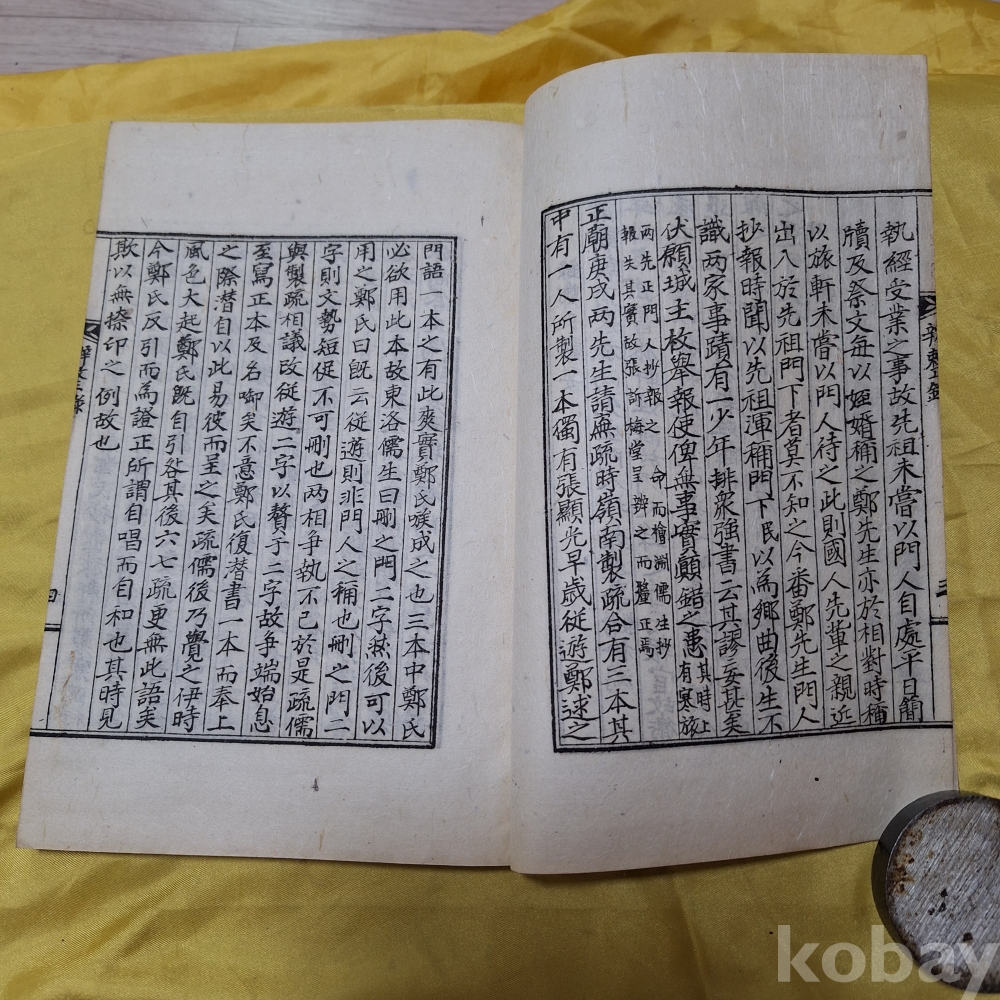 執經受業之事故先祖未嘗以門人自處平日簡
牘及祭文每以姻婚稱之鄭先生亦於相對時稱
以旅軒未嘗以門人待之此則國人先輩之親近
出入於先祖門下者莫不知之今番鄭先生門人
抄報時聞以先祖渾稱門下民以爲鄉曲後生不
識兩家事蹟有一少年排衆強書云其謬妄甚矣
伏願城主枚擧報使俾無事實顚錯之患其時上有寒旅
兩先正門人抄報之命而檜淵儒生抄
報失其實故張訴梅堂呈辨之而釐正焉
正廟庚戌兩先生請廡疏時嶺南製疏合有三本其
中有一人所製一本獨有張顯光早歲從遊鄭逑之
門語一本之有此爽實鄭氏嗾成之也三本中鄭氏
必欲用此本故東洛儒生曰刪之門二字然後可以
用之鄭氏曰旣云從遊則非門人之稱也刪之門二
字則文勢短促不可刪也兩相爭執不已於是疏儒
與製疏相議改從遊二字以贅于二字故爭端始息
至寫正本及名啣矣不意鄭氏復潛書一本而奉上
之際潛自以此易彼而呈之矣疏儒後乃覺之伊時
風色大起鄭氏旣自引咎其後六七疏更無此語矣
今鄭氏反引而爲證正所謂自唱而自和也其時見
欺以無擦印之例故也
三
四
kobay